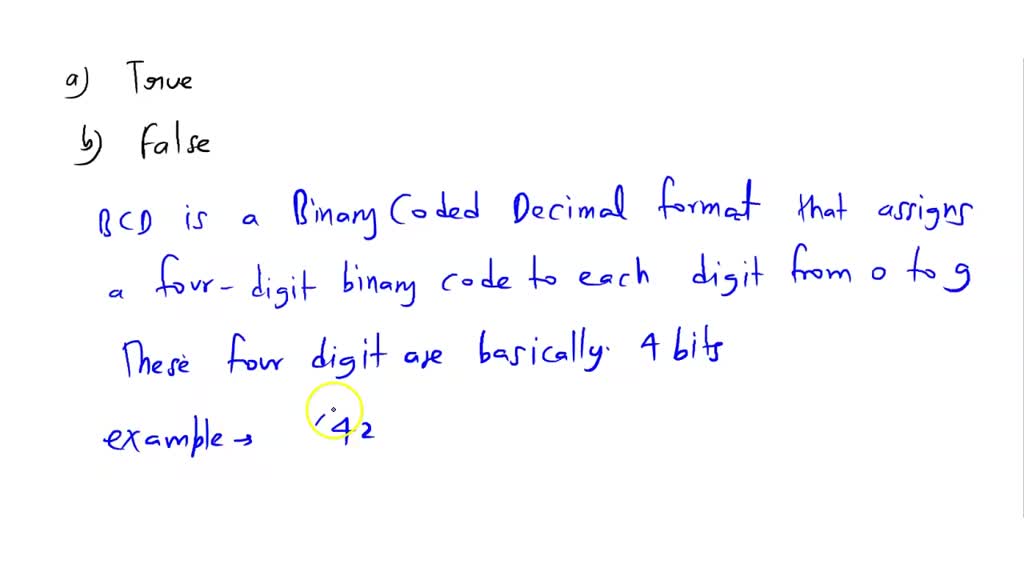 a) True
b) False
BCD is a Binary Coded Decimal format that assigns
a four-digit binary code to each digit from 0 to 9
These four digit are basically. 4 bits
example → '42